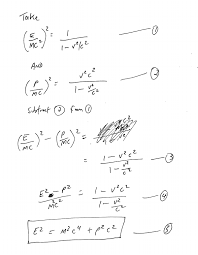 Take
(E/MC²)² = 1/(1 - v²/c²) ①
And
(P/MC)² = v²c²/(1 - v²/c²) ②
Subtract ② from ①
(E/MC)² - (P/MC)² =
= (1 - v²c²)/(1 - v²/c²) ③
(E² - P²)/MC² = (1 - v²c²)/(1 - v²/c²) ④
E² = m²c⁴ + p²c² ⑤